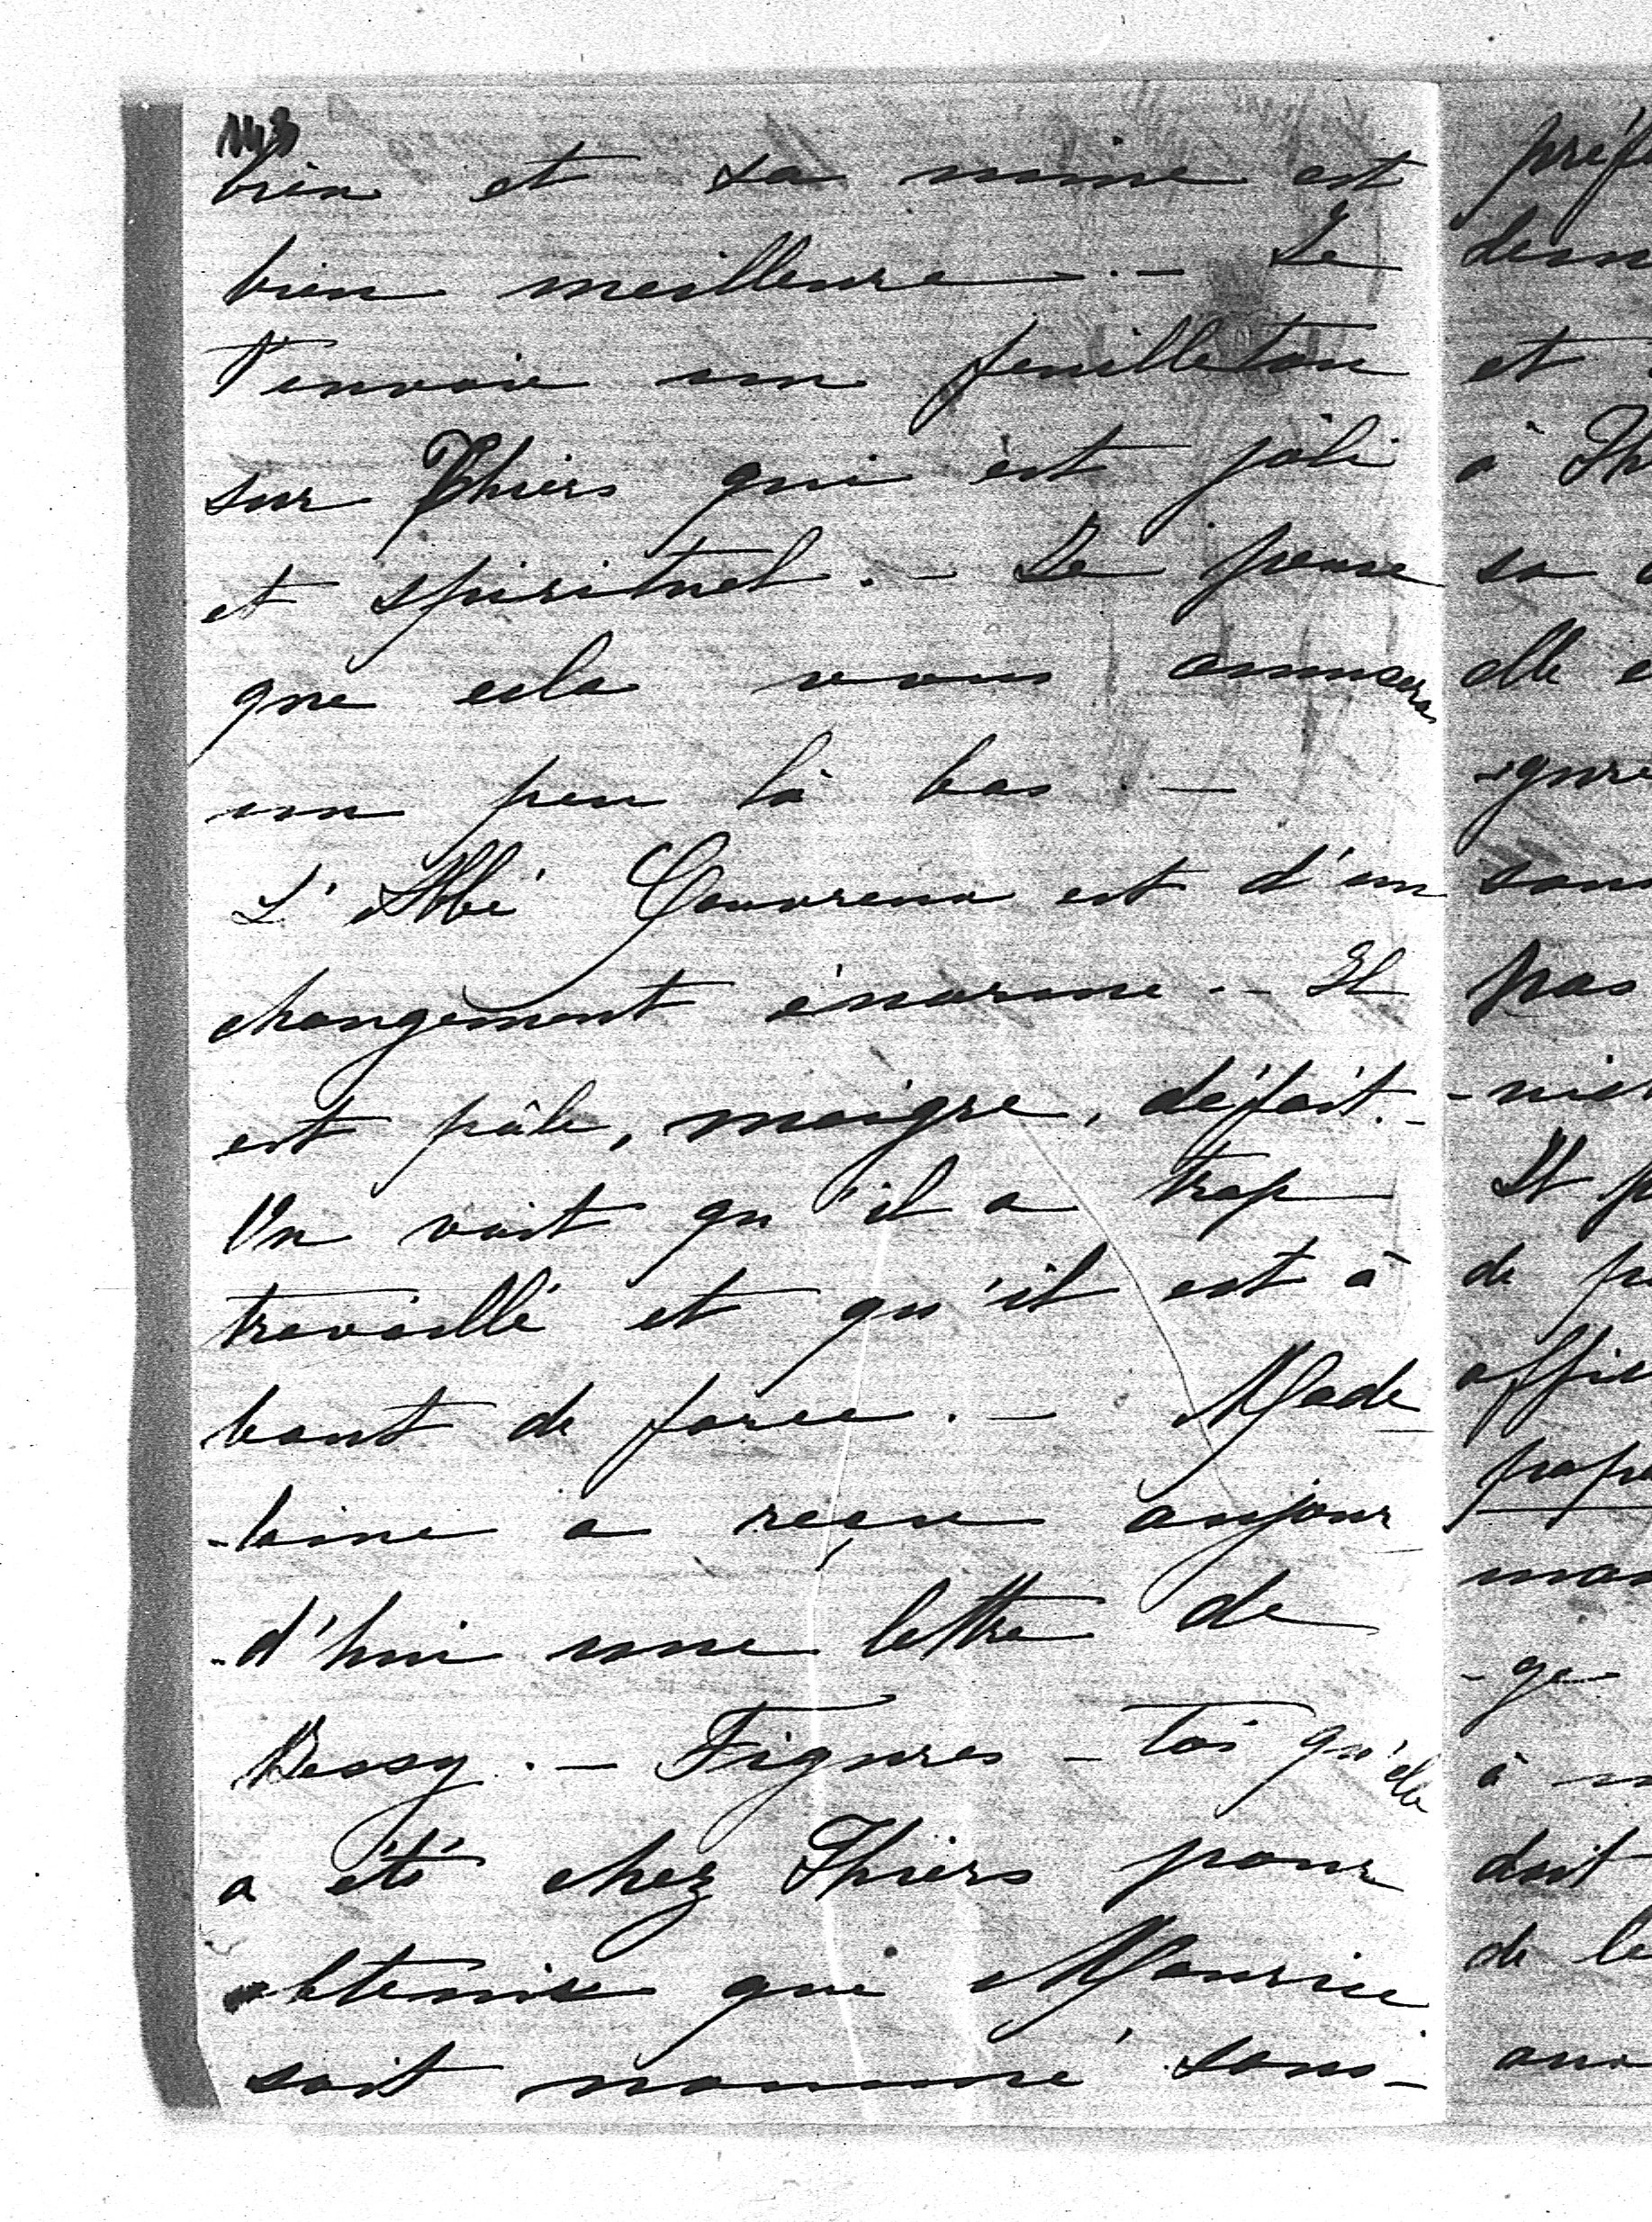 143
bien et sa mine est
bien meilleure. - Je
t'envoie un feuilleton
sur Thiers qui est joli
et spirituel. - Je pense
que cela vous amusera
un peu là bas. -
L'Abbé est d'un
changement énorme. - Il
est pâle, maigre, défait. -
On voit qu'il a trop
travaillé et qu'il est à
bout de force. - Made
-leine a reçu aujour
-d'hui une lettre de
Bessy. - Figures-toi qu'elle
a été chez Thiers pour
obtenir que Maurice
soit nommé sous-
préf
et
à Th
sa
elle
pas
de
à
doit
de le